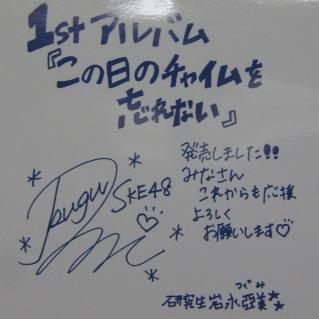 1stアルバム
『この日のチャイムを
忘れない』
発売しました!!
みなさん
これからも応援
よろしく
お願いします♡
Tsugu
SKE48
つぐみ
研究生 岩永亞美